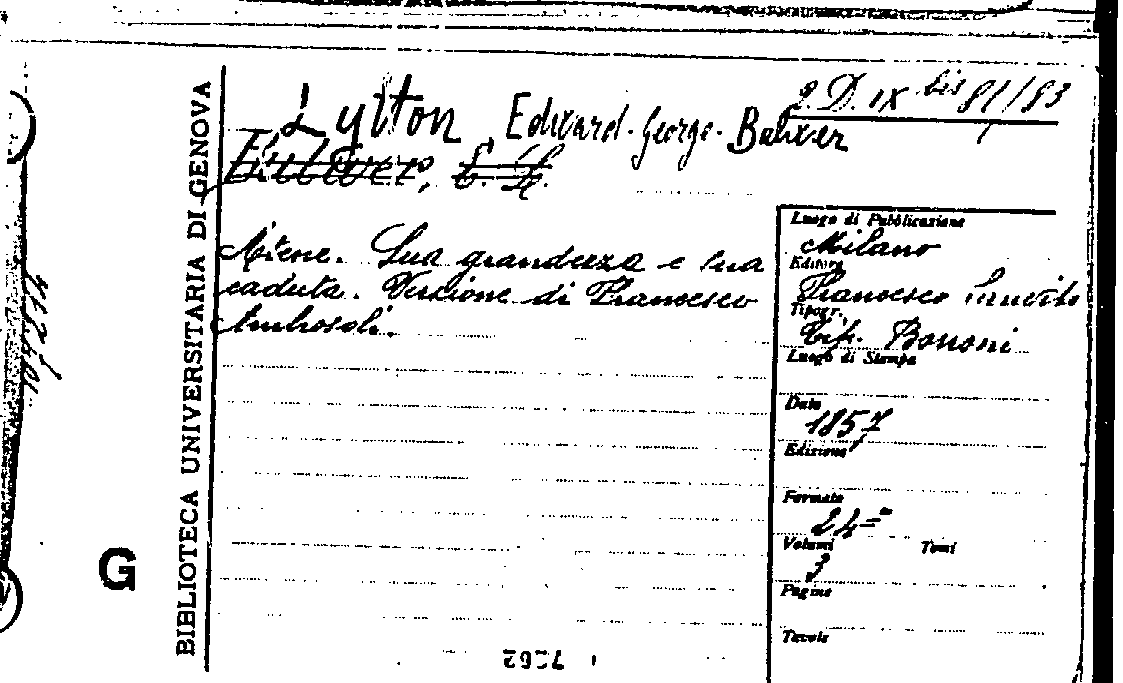 2. D. IX bis 81/83
Lytton Edward-George-Bulwer
Bulwer, E. L.
Atene. Sua grandezza e sua
caduta. Versione di Francesco
Ambrosoli.
Luogo di Pubblicazione
Milano
Editore
Francesco Sanvito
Tipogr.
Tip. Bononi
Luogo di Stampa
Data
1857
Edizione
Formato
24=°
Volumi Tomi
3
Pagine
Tavole
BIBLIOTECA UNIVERSITARIA DI GENOVA
G